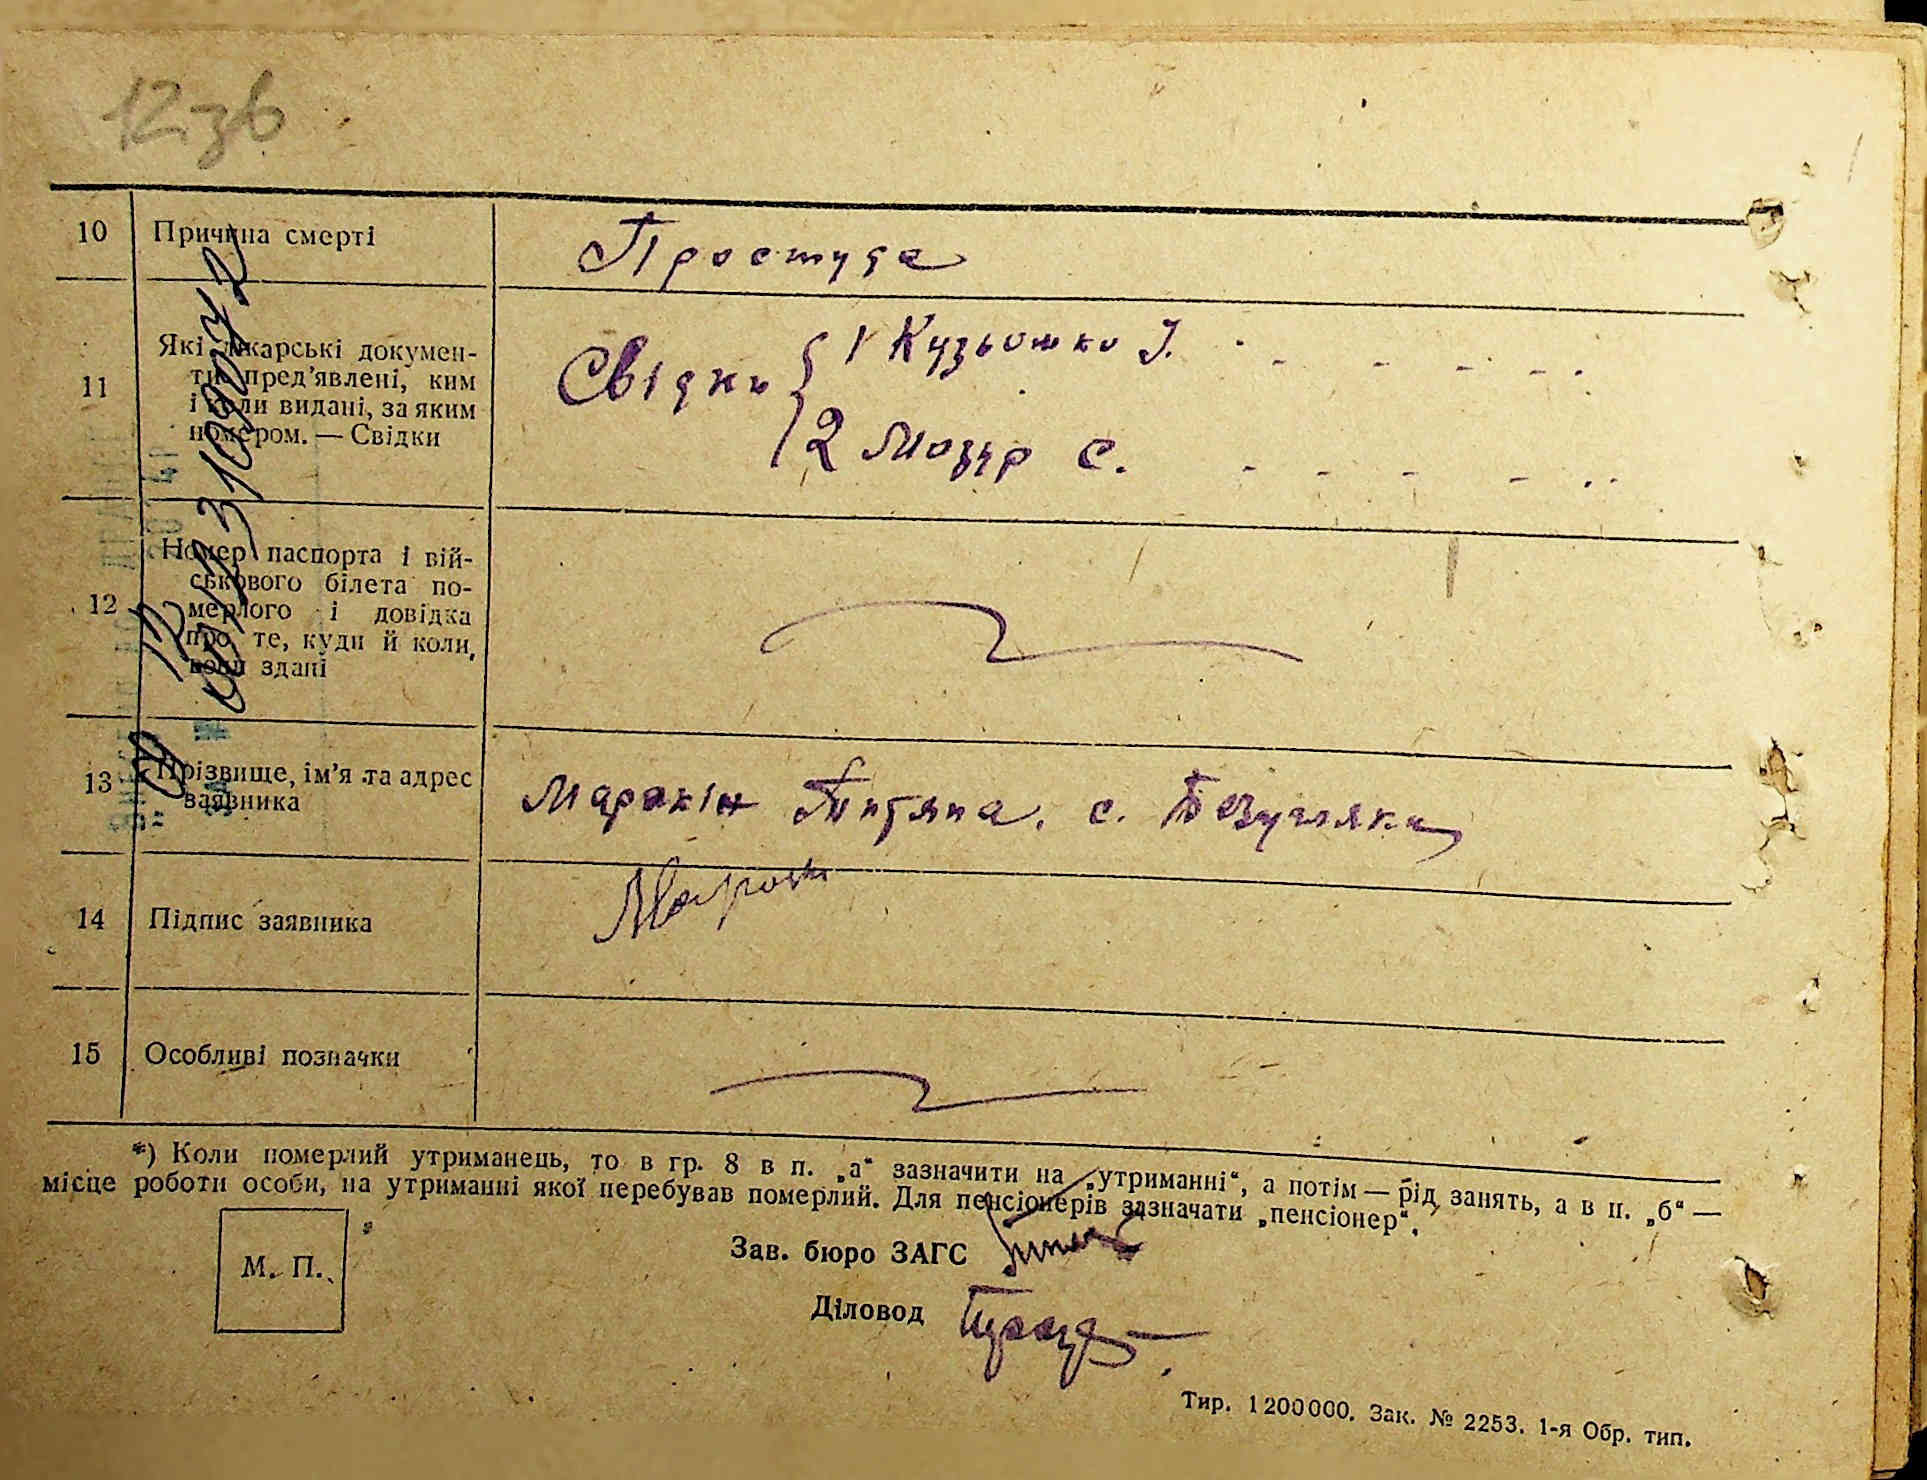 12 зв
10 Причина смерті Простуда
11 Які лікарські докумен-
ти пред'явлені, ким
і коли видані, за яким
номером. — Свідки
Свідки { 1 Кузьошко І.
2 Мозир С.
12 Номер паспорта і вій-
ськового білета по-
мерлого і довідка
про те, куди й коли,
вони здані
13 Прізвище, ім'я та адрес
заявника
с. Безугляки
14 Підпис заявника
15 Особливі позначки
*) Коли померлий утриманець, то в гр. 8 в п. „а“ зазначити на „утриманні“, а потім — рід занять, а в п. „б“ —
місце роботи особи, на утриманні якої перебував померлий. Для пенсіонерів зазначати „пенсіонер“.
М. П.
Зав. бюро ЗАГС
Діловод
Тир. 1200000. Зак. № 2253. 1-я Обр. тип.